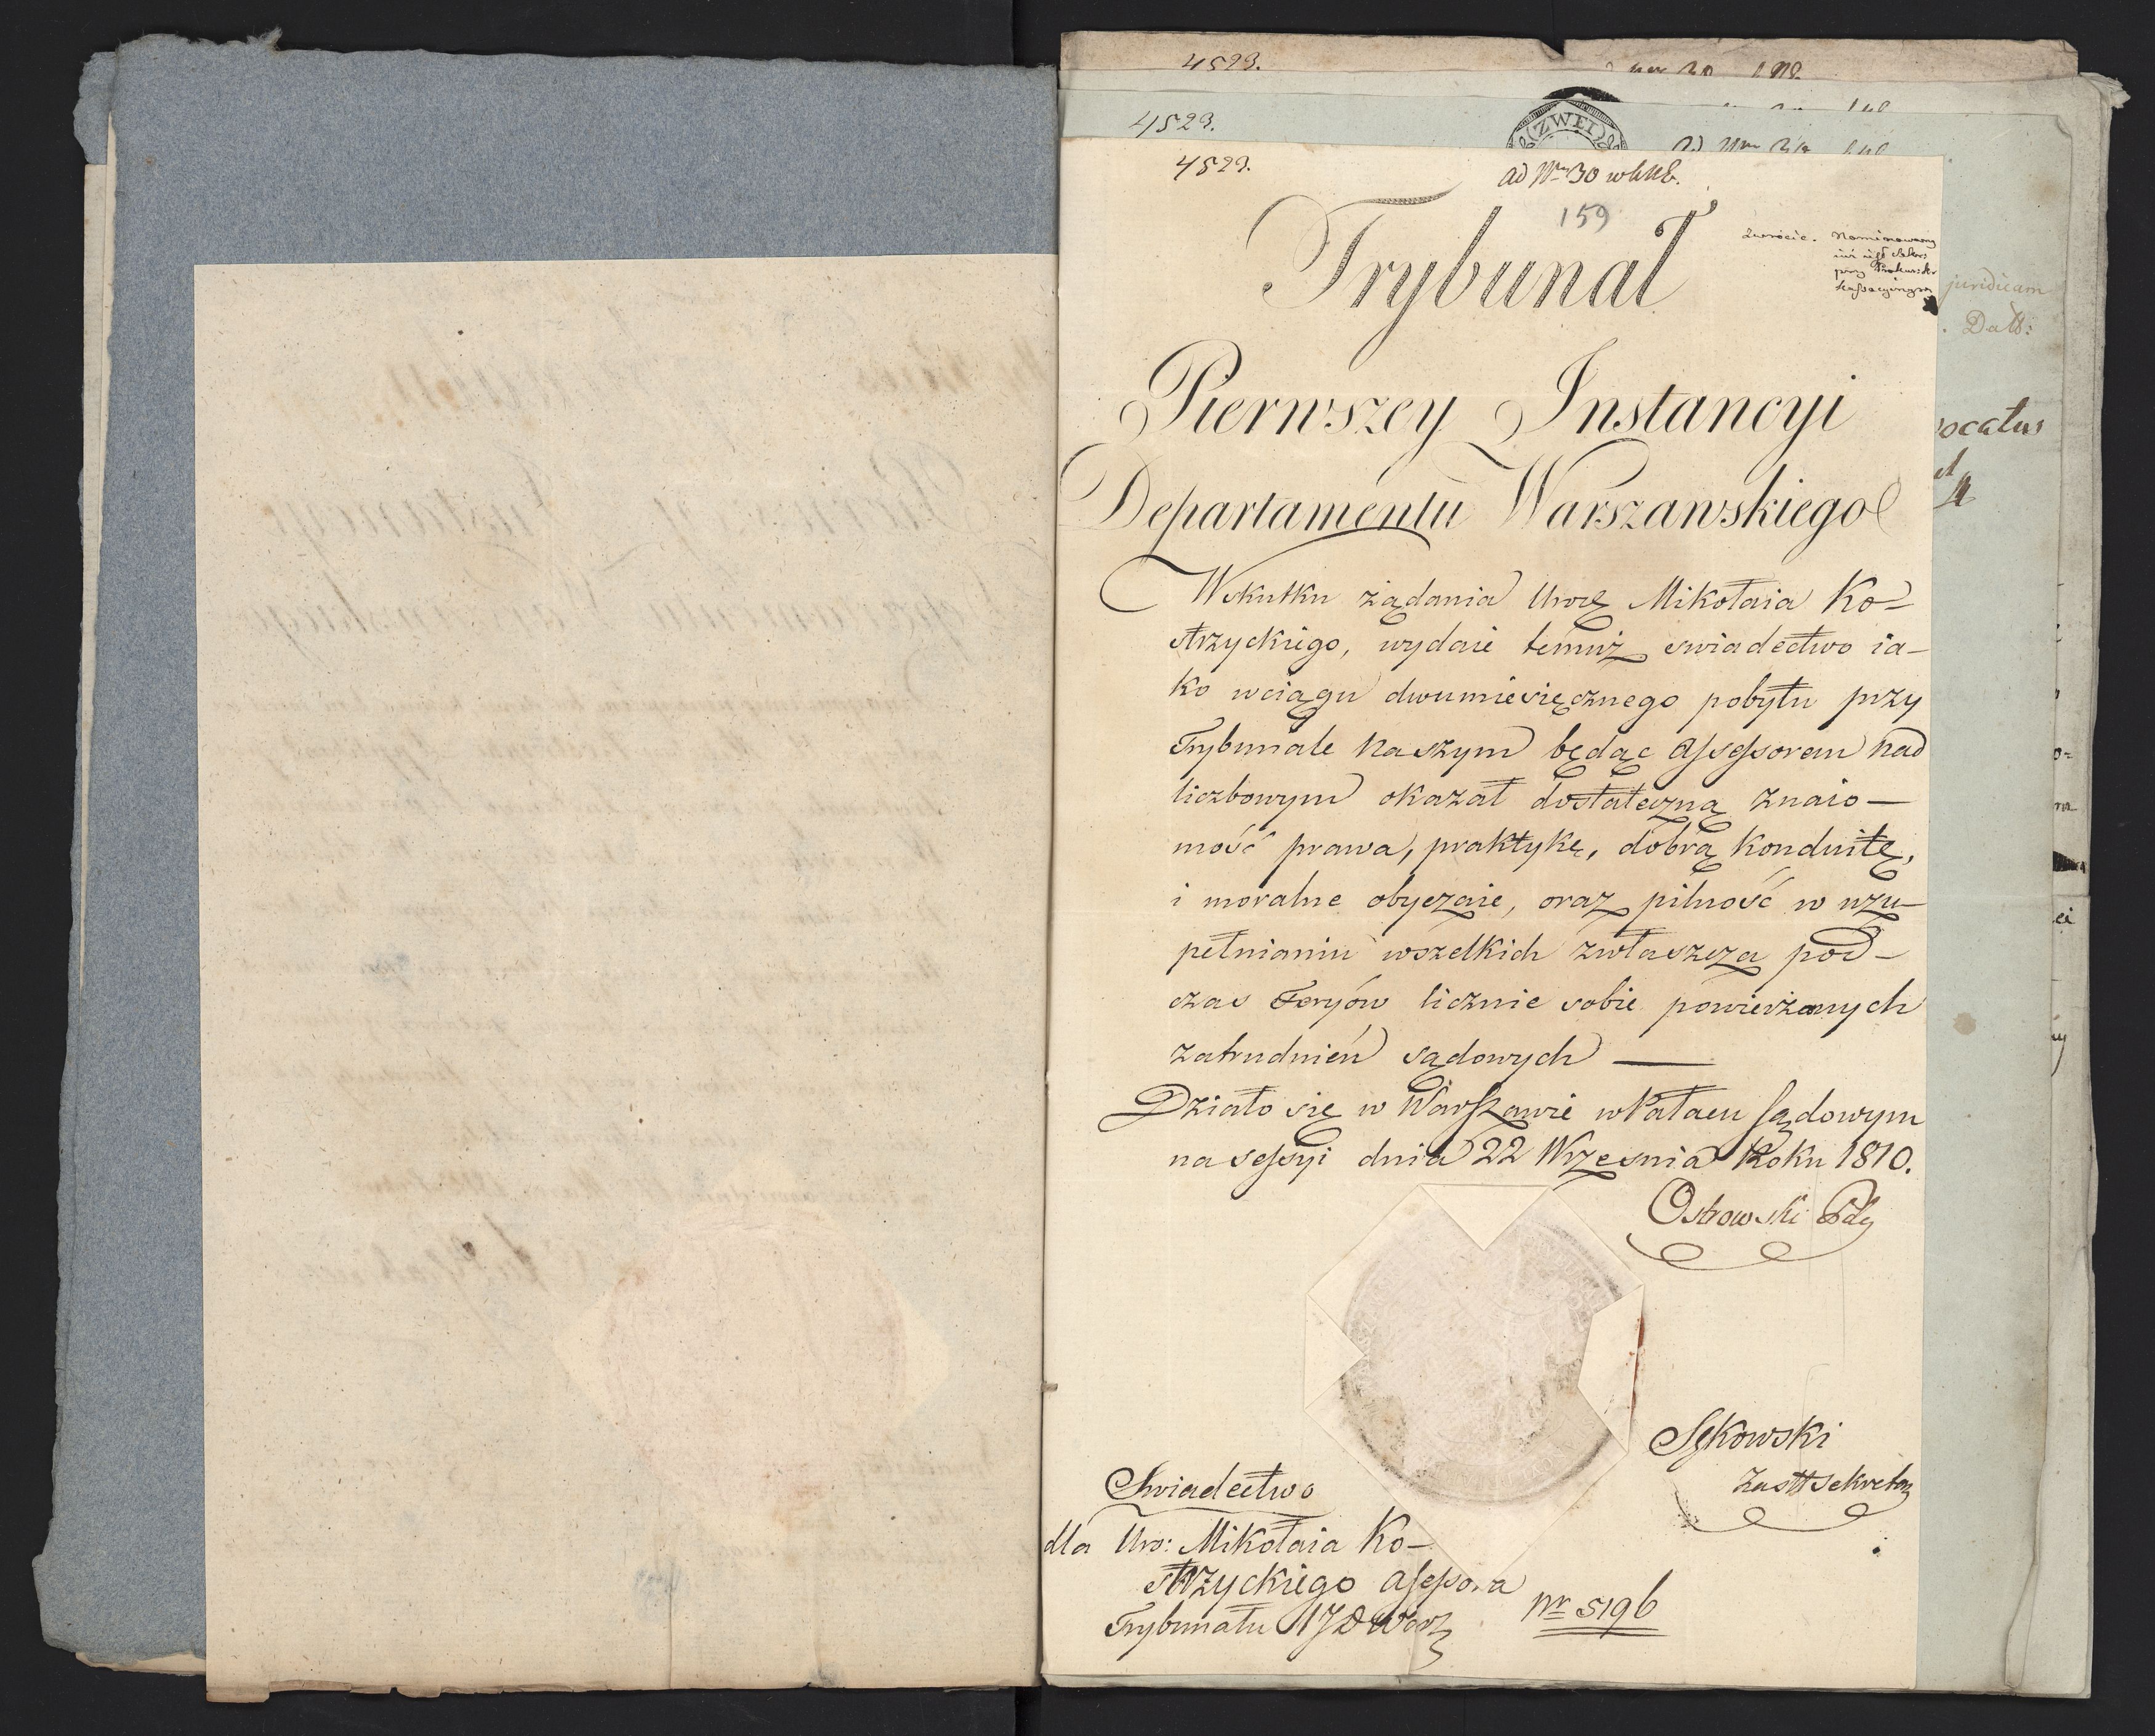 4523.
4523.
ZWEI
4523.
ad Nrum 30
159
Trybunał
zwrócic. Nominowany
iuż
przy Prokur:
Kassacyinym
juridicam
Datt:
vocatus
Pierwszey Instancyi
Departamentu Warszawskiego
Wskutku żądania Uro Mikołaia Ko-
strzyckiego, wydaie temuż swiadectwo ia-
ko wciągu dwumiesięcznego pobytu przy
Trybunale Naszym będąc Assessorem nad
liczbowym okazał dostateczną znaio-
mość prawa, praktykę, dobrą konduitę,
i moralne obyczaie, oraz pilność w uzu-
pełnianiu wszelkich zwłaszcza pod-
czas Feryów licznie sobie powierzanych
zatrudnień sądowych —
Działo się w Warszawie w Pałacu Sądowym
na sessyi dnia 22 Wrzesnia Roku 1810.
Ostrowski
Sękowski
Zastt Sekretarz
Swiadectwo
dla Uro: Mikołaia Ko-
strzyckiego assessora
Trybunału 1 J D Warsz
Nr 5196